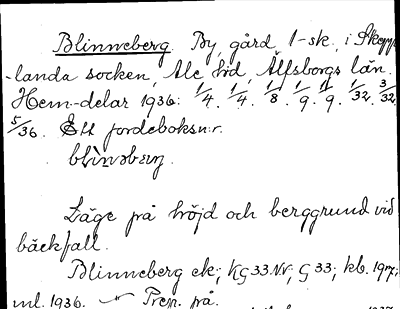 Blinneberg. By, gård, 1-sk., i Skepp-
landa socken, Ale hd, Älfsborgs län.
Hem-delar 1936: 1/4. 1/4. 1/8. 1/9. 1/9. 1/32. 3/32.
5/36. Ett jordeboksn:r.
blìnəbærj.
Läge på höjd och berggrund vid
bäckfall.
Blinneberg ek; KG 33 NV; G 33; kb. 1917;
ml. 1936. Prep. på.